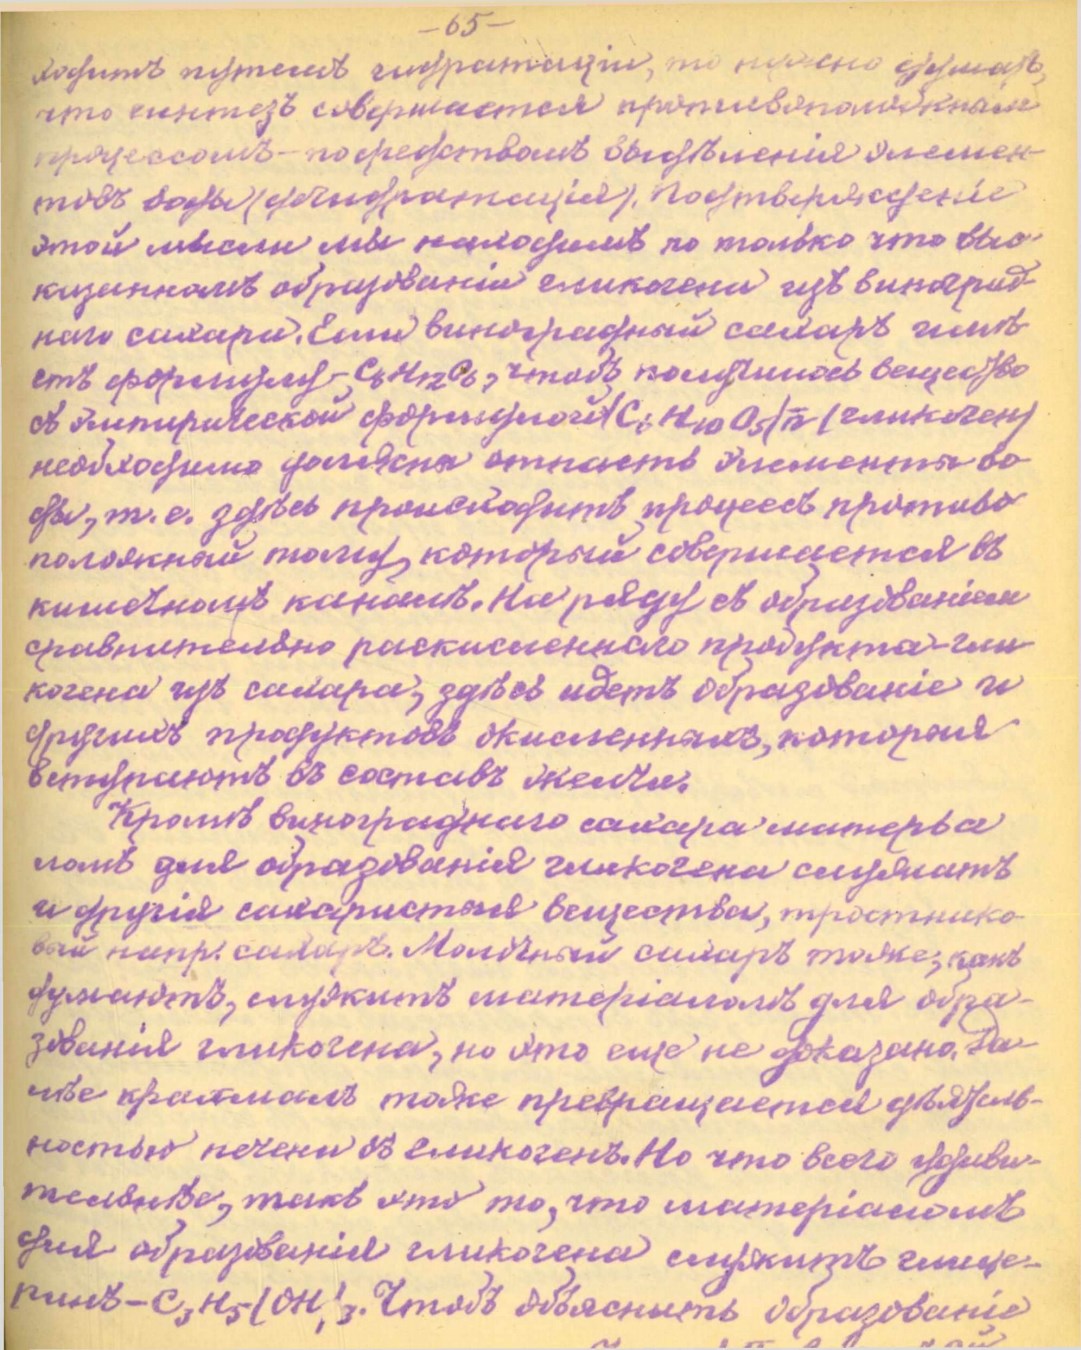 -65-
ходитъ путемъ гидратаціи, то нужно думать,
что синтезъ совершается противоположнымъ
процессомъ - посредствомъ выдѣленія элемен-
товъ воды (дегидратація). Подтвержденіе
этой мысли мы находимъ по только что выс-
казанномъ образованіи гликогена изъ виноград-
наго сахара. Если виноградный сахаръ имѣ-
етъ формулу - C6H12O6, чтобъ получилось вещество
съ эмпирической формулой (C6H10O5)n (гликоген)
необходимо должны отпасть элементы во-
ды, т.е. здѣсь происходитъ процессъ противо
положный тому, который совершается въ
кишечномъ каналѣ. На ряду съ образованіем
сравнительно раскисленнаго продукта - гли
когена изъ сахара, здѣсь идетъ образованіе и
другихъ продуктовъ окисленныхъ, которыя
вступаютъ въ составъ желчи.
Кромѣ винограднаго сахара матерья
ломъ для образованія гликогена служатъ
и другія сахаристыя вещества, тростнико-
вый напр. сахаръ. Молочный сахаръ тоже, какъ
думаютъ, служитъ матеріаломъ для обра-
зованія гликогена, но это еще не доказано. Да-
лѣе крахмалъ тоже превращается дѣятель-
ностью печени въ гликогенъ. Но что всего удиви-
тельнѣе, такъ это то, что матеріаломъ
для образованія гликогена служитъ глице-
ринъ - C3H5(OH)3. Чтобъ объяснить образованіе